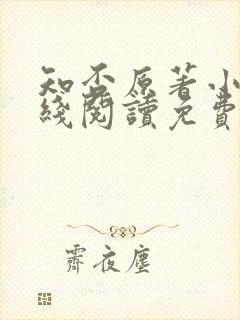 知否原著小
綫閱讀免費
霽夜塵